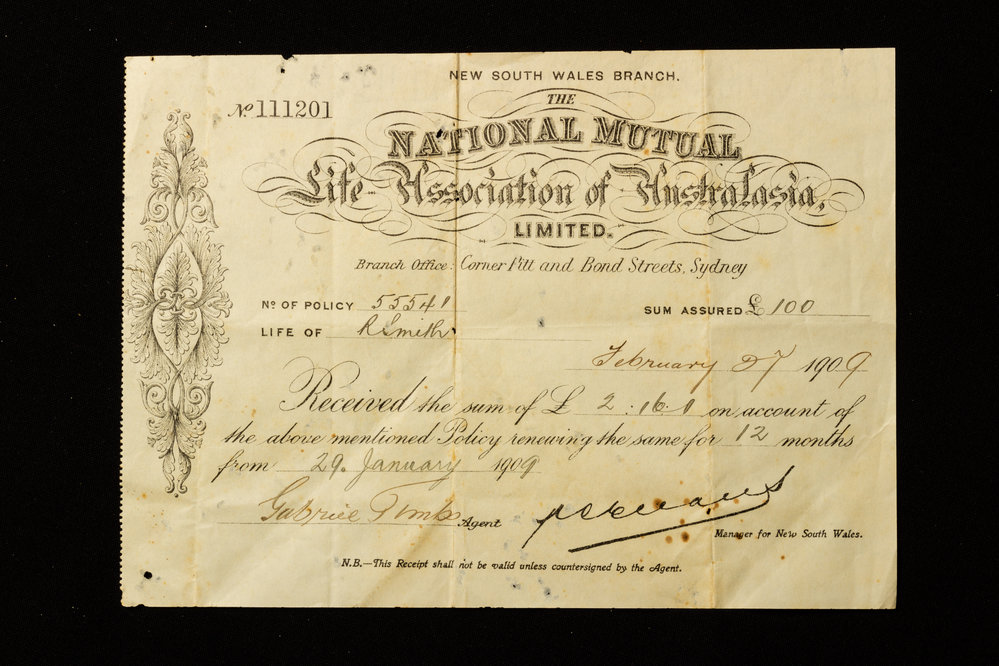 NEW SOUTH WALES BRANCH.
No 111201
THE
NATIONAL MUTUAL
Life Association of Australasia,
LIMITED.
Branch Office: Corner Pitt and Bond Streets, Sydney
No OF POLICY 55541 SUM ASSURED £ 100
LIFE OF R Smith
February 27 1909
Received the sum of £ 2:16:1 on account of
the above mentioned Policy renewing the same for 12 months
from 29. January 1909
Gabriel Agent
Manager for New South Wales.
N.B.—This Receipt shall not be valid unless countersigned by the Agent.